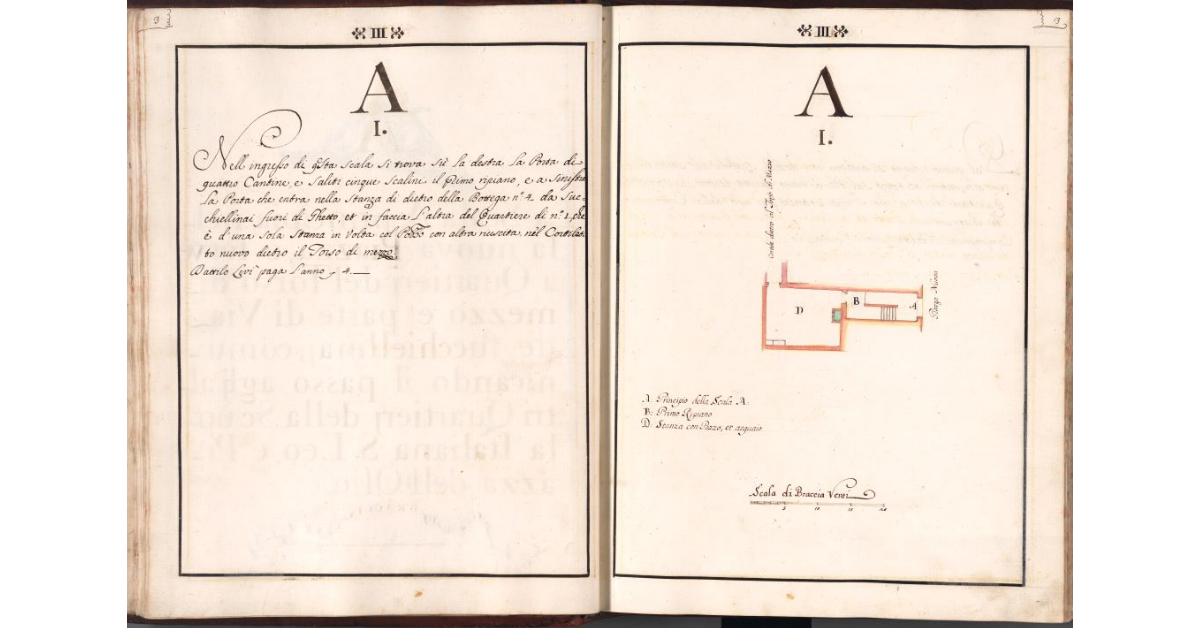 III
A
I.
Nell ingresso di qsta scala si trova sù la destra la Porta di
quattro Cantine, e Saliti cinque Scalini il primo ripiano, e a Sinistra
la Porta che entra nella Stanza di dietro della Bottega n.º 4. da Suc-
chiellinai fuori di Ghetto, et in faccia l'altra del Quartiere di n.º 1.
è d'una sola Stanza in Volta col Pozzo con altra riuscita, nel Cortilet-
to nuovo dietro il Torso di mezzo
Dattilo Levi paga l'anno 4.
III
13
A
I.
Cortile dietro al Torso di Mezzo
B
A
D
A. Principio della Scala A.
B. Primo Ripiano
D. Stanza con Pozzo, et acquaio
Scala di Braccia Venti
5 10 15 20